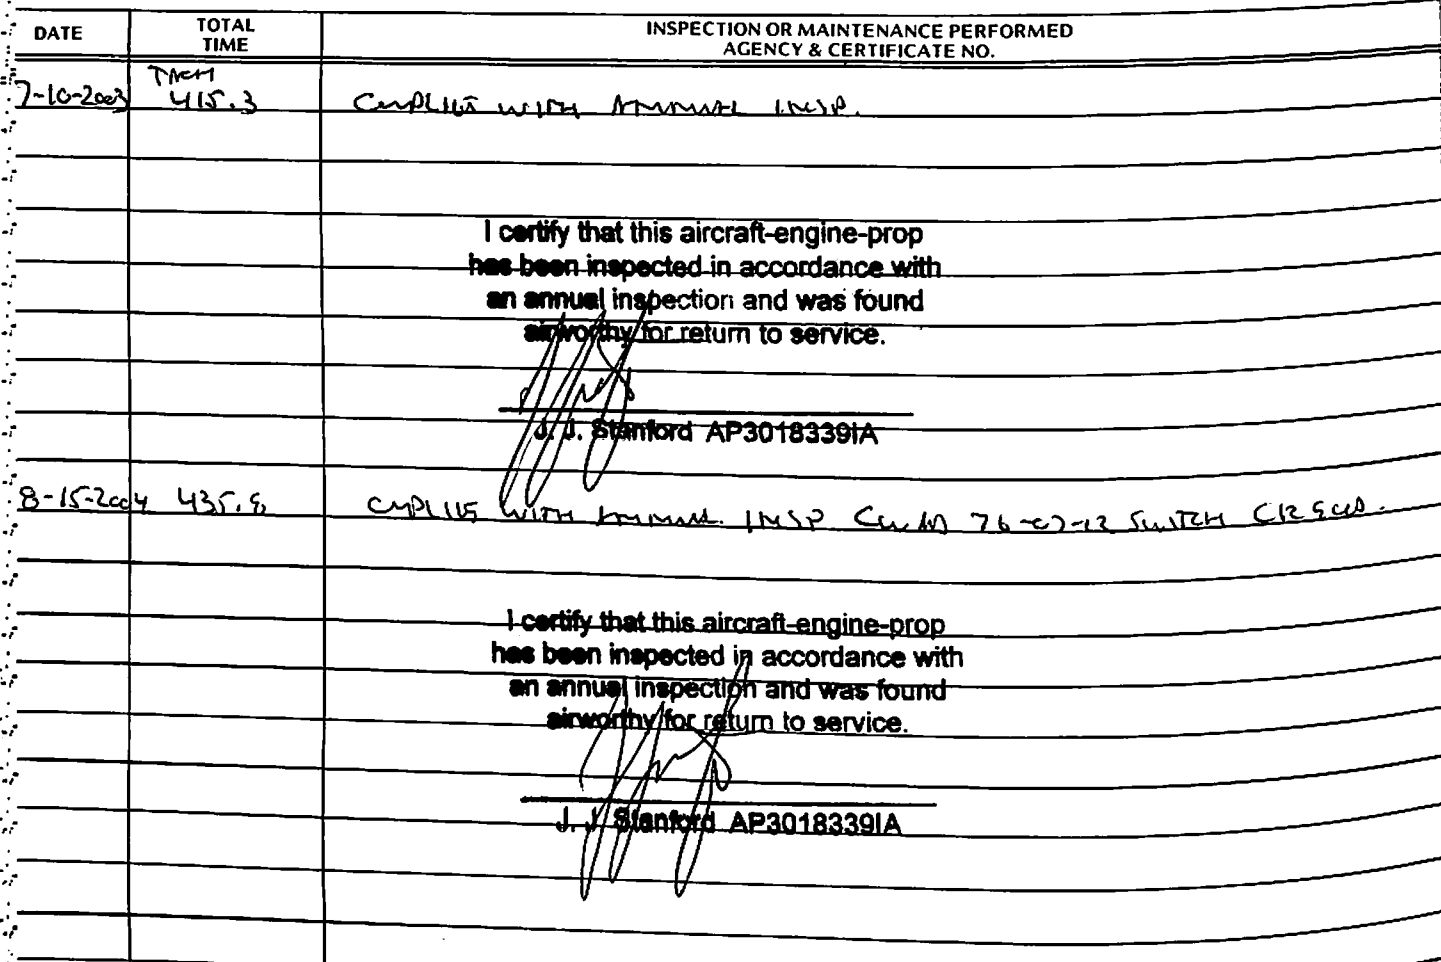 DATE TOTAL TIME INSPECTION OR MAINTENANCE PERFORMED
AGENCY & CERTIFICATE NO.
TACH
7-10-2003 415.3 COMPLIED WITH ANNUAL INSP.
I certify that this aircraft-engine-prop
has been inspected in accordance with
an annual inspection and was found
airworthy for return to service.
J. J. Stanford AP3018339IA
8-15-2004 WITH ANNUAL INSP 76-07-12 SWITCH
I certify that this aircraft-engine-prop
has been inspected in accordance with
an annual inspection and was found
airworthy for return to service.
J. J. Stanford AP3018339IA